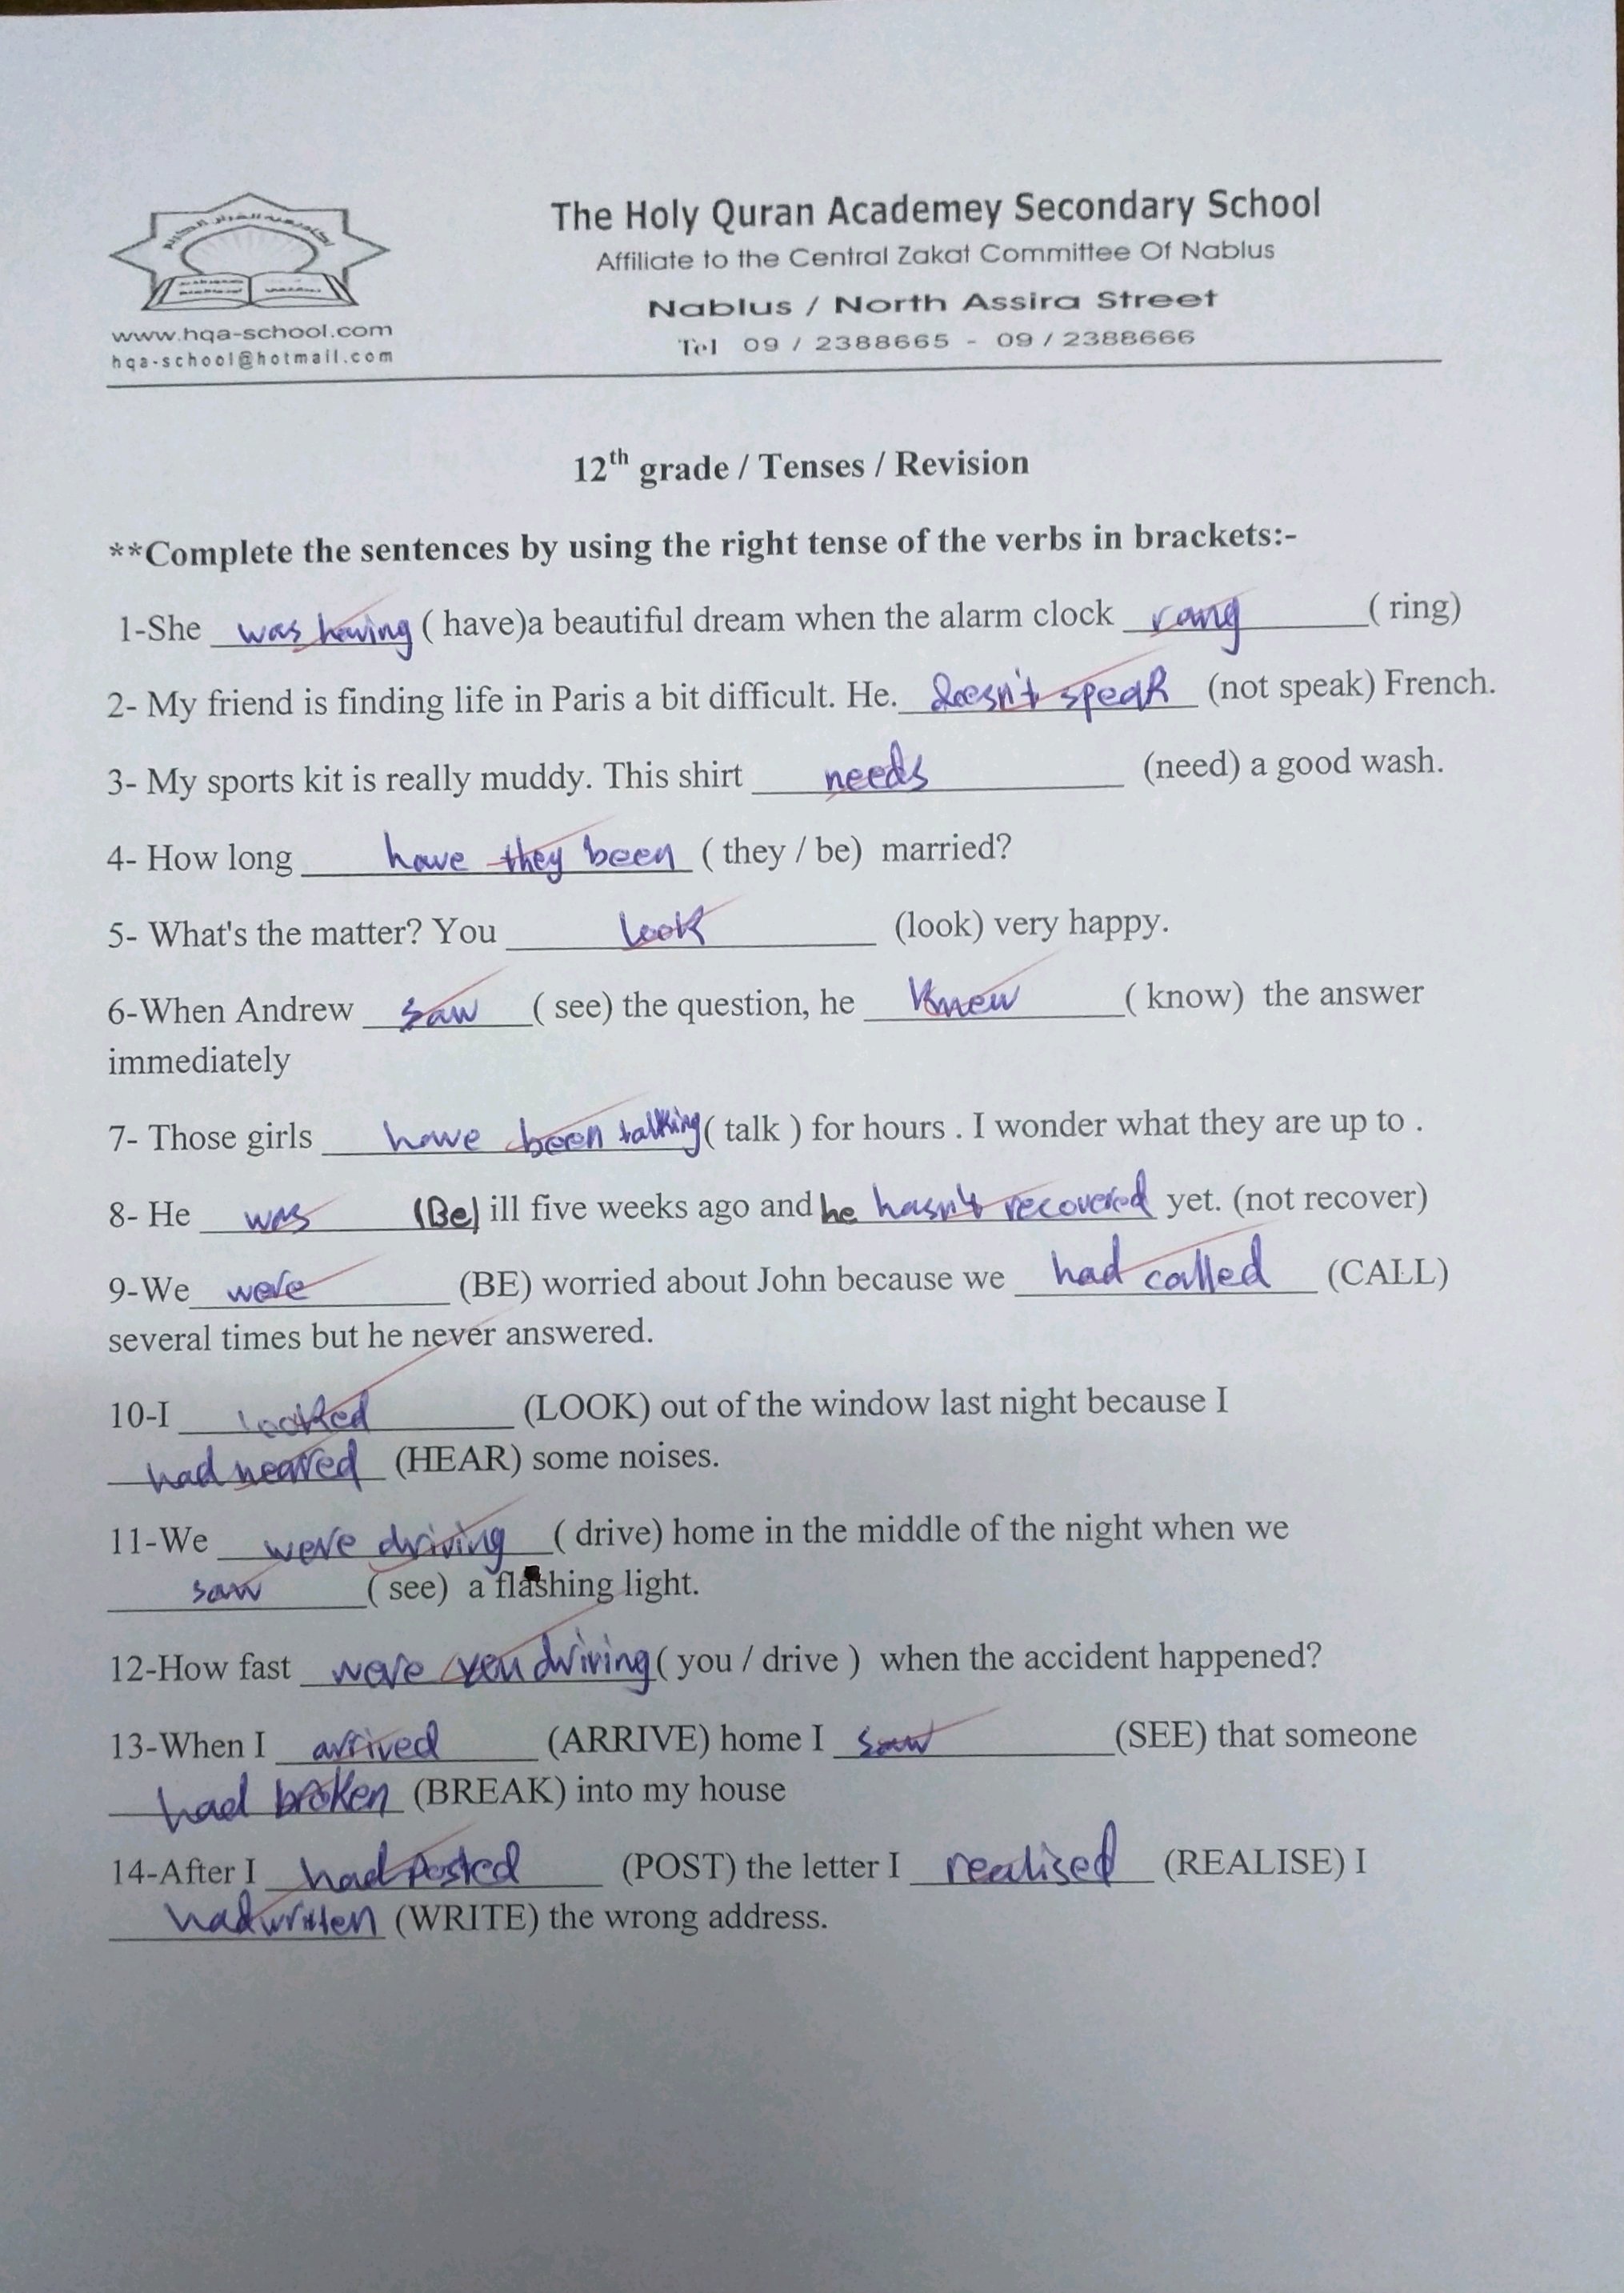 The Holy Quran Academey Secondary School
Affiliate to the Central Zakat Committee Of Nablus
Nablus / North Assira Street
Tel 09 / 2388665 - 09 / 2388666
www.hqa-school.com
hqa-school@hotmail.com
12th grade / Tenses / Revision
**Complete the sentences by using the right tense of the verbs in brackets:-
1-She was having ( have)a beautiful dream when the alarm clock rang ( ring)
2- My friend is finding life in Paris a bit difficult. He. doesn't speak (not speak) French.
3- My sports kit is really muddy. This shirt needs (need) a good wash.
4- How long have they been ( they / be) married?
5- What's the matter? You look (look) very happy.
6-When Andrew saw ( see) the question, he knew ( know) the answer
immediately
7- Those girls have been talking ( talk ) for hours . I wonder what they are up to .
8- He was (Be) ill five weeks ago and he hasn't recovered yet. (not recover)
9-We were (BE) worried about John because we had called (CALL)
several times but he never answered.
10-I looked (LOOK) out of the window last night because I
had heared (HEAR) some noises.
11-We were driving ( drive) home in the middle of the night when we
saw ( see) a flashing light.
12-How fast were you driving ( you / drive ) when the accident happened?
13-When I arrived (ARRIVE) home I saw (SEE) that someone
had broken (BREAK) into my house
14-After I had posted (POST) the letter I realised (REALISE) I
had written (WRITE) the wrong address.